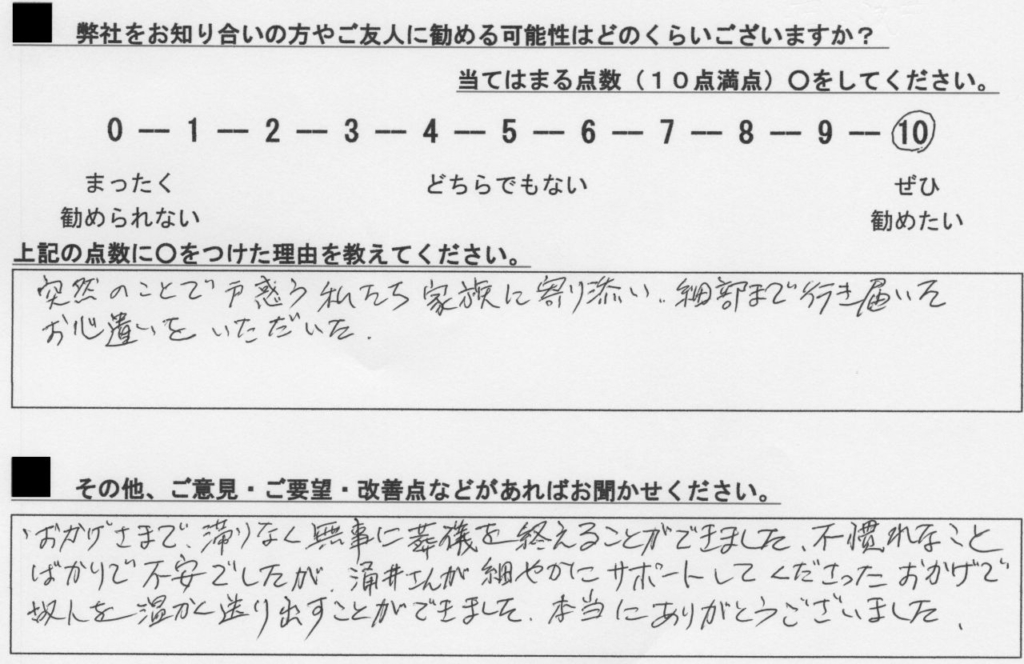 弊社をお知り合いの方やご友人に勧める可能性はどのくらいございますか？
当てはまる点数（１０点満点）〇をしてください。
0 -- 1 -- 2 -- 3 -- 4 -- 5 -- 6 -- 7 -- 8 -- 9 -- 10
まったく どちらでもない ぜひ
勧められない 勧めたい
上記の点数に〇をつけた理由を教えてください。
突然のことで戸惑う私たち家族に寄り添い、細部まで行き届いた
お心遣いをいただいた.
その他、ご意見・ご要望・改善点などがあればお聞かせください。
おかげさまで、滞りなく無事に葬儀を終えることができました、不慣れなこと
ばかりで不安でしたが、涌井さんが細やかにサポートしてくださったおかげで
故人を温かく送り出すことができました、本当にありがとうございました、